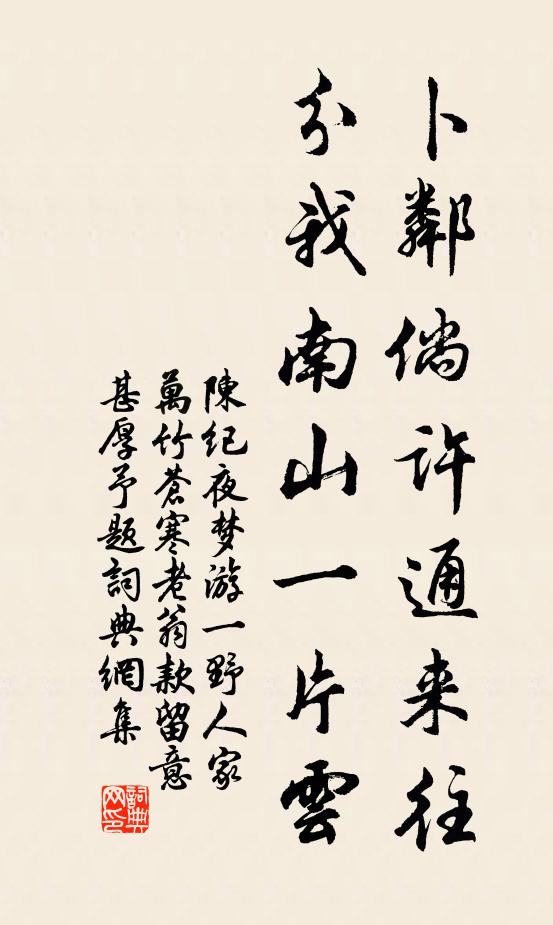 卜鄰倘许通来往
分我南山一片雲
陳纪夜梦游一野人家
萬竹蒼寒老翁款留意
甚厚予题詞典網集
詞典网印